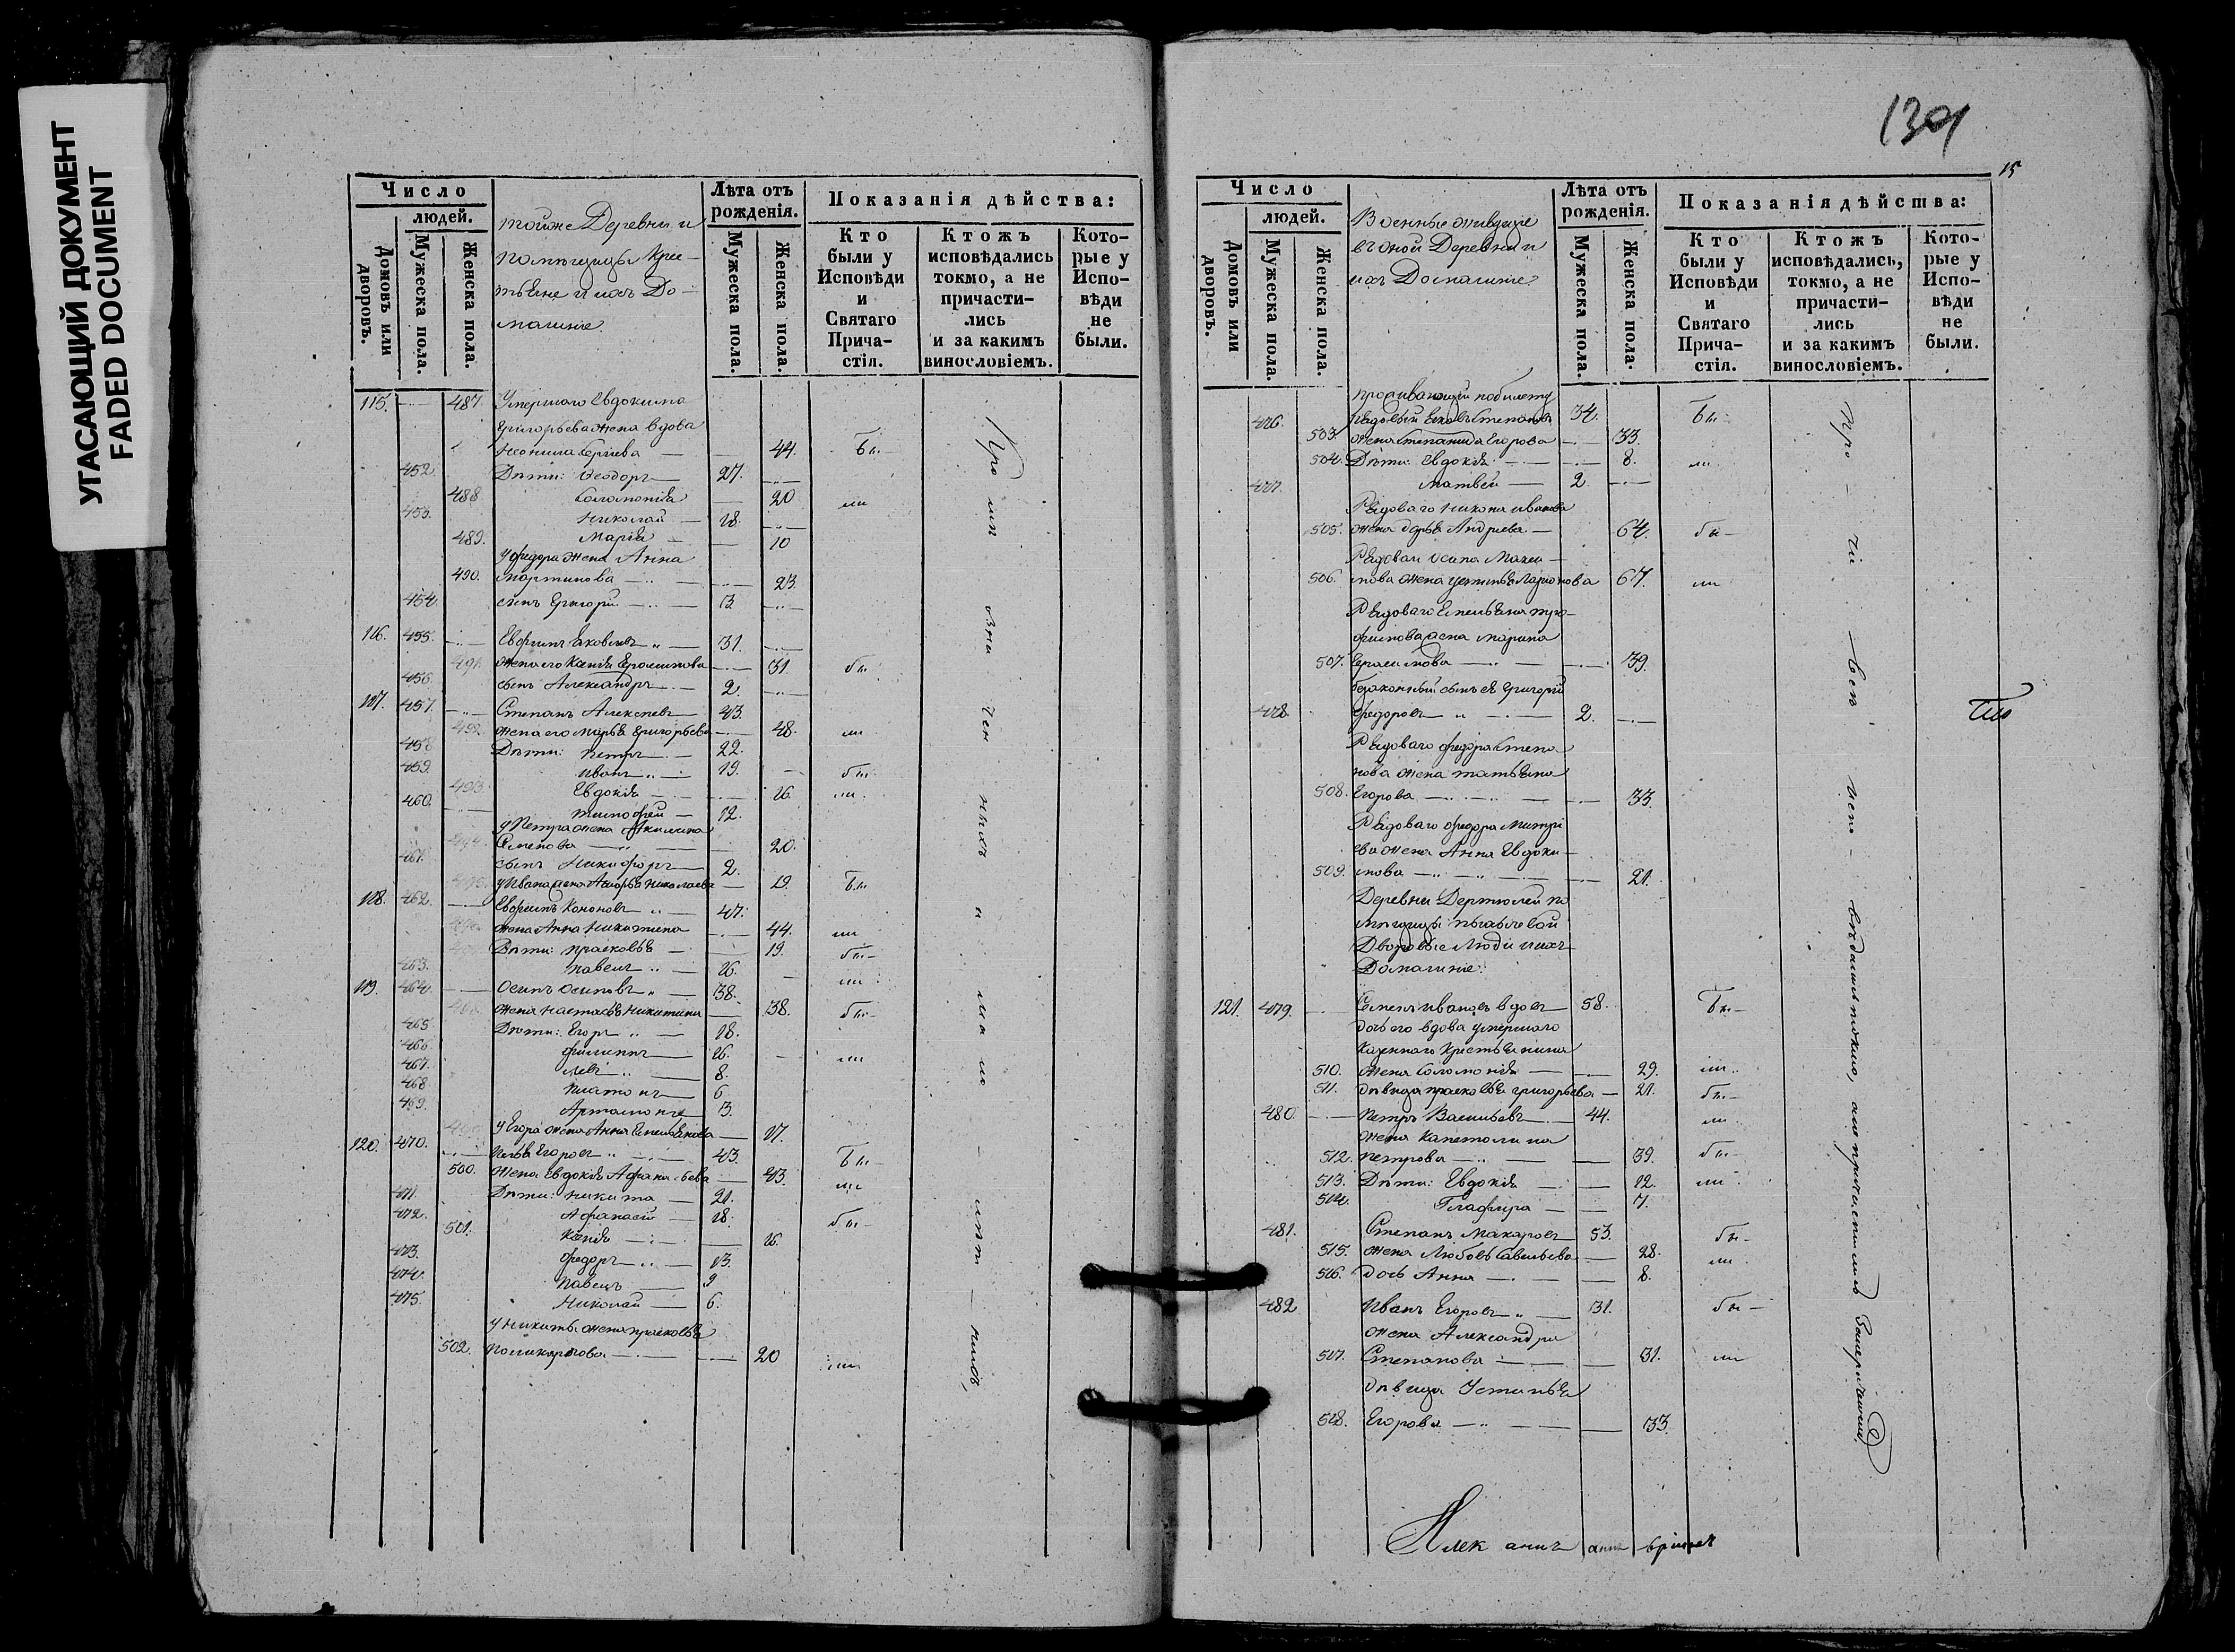 УГАСАЮЩИЙ ДОКУМЕНТ
FADED DOCUMENT
Число
людей.
Домовъ или дворовъ.
Мужеска пола.
Женска пола.
тойже Деревни и
помѣщицы Крес-
тьяне и ихъ До-
машніе.
Лѣта отъ рожденія.
Мужеска пола.
Женска пола.
Показанія дѣйства:
Кто были у Исповѣди и Святаго Прича-стія.
Ктожъ исповѣдались токмо, а не причасти-лись и за какимъ винословіемъ.
Кото-рые у Испо-вѣди не были.
115. 487. Умершаго Евдокима
Григорьева жена вдова
44. Бы.
452. Дѣти: Ѳеодоръ 27.
488 Соломонія 20
453. Николай 18.
489. Марія 10
У Федора жена Анна
490. Мартинова 23.
454. сынъ Григори 3.
116. 455. Евфимъ Яковлевъ 31.
491. жена его Ксенія Герасимова 31. бы.
456. сынъ Александръ 2.
117. 457. Степанъ Алексѣевъ 43.
492. жена его Марья Григорьева 48.
458. Дѣти: Петръ 22.
459. Иванъ 19. бы.
493. Евдокія 16.
460. Тимофей 12.
у Петра жена Акилина
494. Семенова 20.
461. сынъ Никифоръ 2.
495. у Ивана жена Марья Николаева 19. Бы
118. 462. Евфимъ Кононовъ 47.
жена Анна Никитина 44.
Дѣти: Прасковья 19. бы
463. Павелъ 16.
119. 464. Осипъ Осиповъ 38.
498. жена Настасья Никитина 38. бы
465. Дѣти: Егоръ 18.
466. Филиппъ 16.
467. Левъ 8.
468. Платонъ 6
469. Артамонъ 3.
499. У Егора жена Анна Емельянова 17.
120. 470. Илья Егоровъ 43. Бы
500. жена Евдокія Афанасьева 43.
471. Дѣти: Никита 21.
472. Афанасій 18. бы
501. Ксенія 16.
473. Федоръ 13.
474. Павелъ 9
475. Николай 6.
у Никиты жена Прасковья
502. Поликарпова 20
139
15
Число
людей.
Домовъ или дворовъ.
Мужеска пола.
Женска пола.
Военные живущіе
въ оной Деревни и
ихъ Домашніе
Лѣта отъ рожденія.
Мужеска пола.
Женска пола.
Показанія дѣйства:
Кто были у Исповѣди и Святаго Прича-стія.
Ктожъ исповѣдались, токмо, а не причасти-лись и за какимъ винословіемъ.
Кото-рые у Испо-вѣди не были.
проживающій по билету
476. рядовый Яковъ Степановъ 34. Бы
503. жена Степанида Егорова 33.
504. Дѣти: Евдокія 8.
477. Матвей 2.
Рядоваго Никона Иванова
505. жена Дарья Андреева 64. бы
506. нова жена Устинья Ларіонова 67.
Рядоваго Емельяна Тро-
фимова жена Марина
507. Герасимова 39.
безаконный сынъ ея Григорій
478. Федоровъ 2.
Рядоваго Федора Степа
нова жена Татьяна
508. Егорова 33.
Рядоваго Федора Митрі
ева жена Анна Евдоки-
509. мова 21.
Дворовые Люди и ихъ
Домашніе.
121. 479. Семенъ Ивановъ вдовъ 58. Бы
дочь его вдова умершаго
Казеннаго Крестьянина
510. жена Соломонія 29.
511. дѣвица Прасковья Григорьева 21. бы
480. Петръ Васильевъ 44.
жена Капетолина
512. Петрова 39. бы
513. Дѣти: Евдокія 12.
514. Глафира 7.
481. Степанъ Макаровъ 53. бы
515. жена Любовь Савельева 28.
516. дочь Анна 8.
482 Иванъ Егоровъ 31. бы
жена Александра
517. Степанова 31.
дѣвица Устинья
518. Егорова 33.